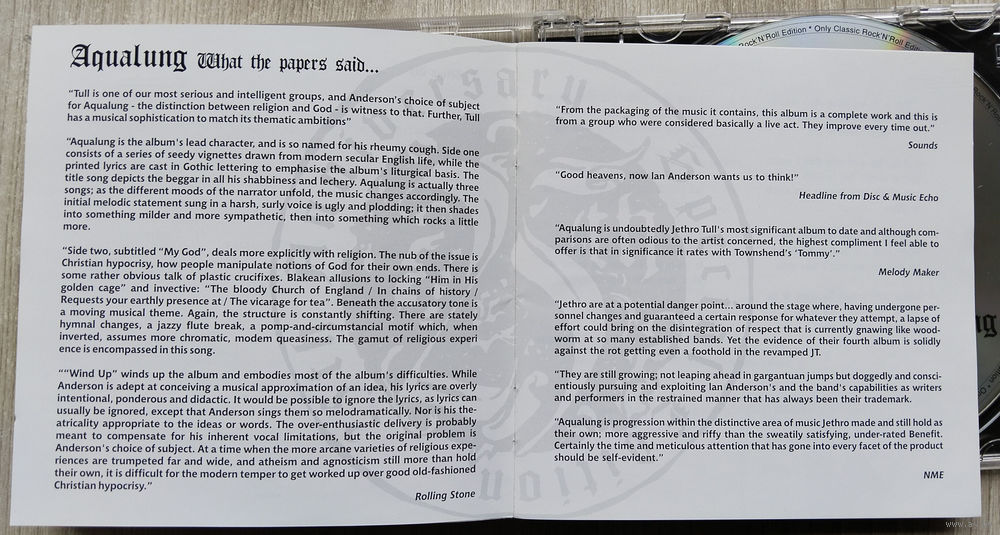 Aqualung What the papers said...
"Tull is one of our most serious and intelligent groups, and Anderson's choice of subject
for Aqualung - the distinction between religion and God - is witness to that. Further, Tull
has a musical sophistication to match its thematic ambitions"
"Aqualung is the album's lead character, and is so named for his rheumy cough. Side one
consists of a series of seedy vignettes drawn from modern secular English life, while the
printed lyrics are cast in Gothic lettering to emphasise the album's liturgical basis. The
title song depicts the beggar in all his shabbiness and lechery. Aqualung is actually three
songs; as the different moods of the narrator unfold, the music changes accordingly. The
initial melodic statement sung in a harsh, surly voice is ugly and plodding; it then shades
into something milder and more sympathetic, then into something which rocks a little
more.
"Side two, subtitled "My God", deals more explicitly with religion. The nub of the issue is
Christian hypocrisy, how people manipulate notions of God for their own ends. There is
some rather obvious talk of plastic crucifixes. Blakean allusions to locking "Him in His
golden cage" and invective: "The bloody Church of England / In chains of history /
Requests your earthly presence at / The vicarage for tea". Beneath the accusatory tone is
a moving musical theme. Again, the structure is constantly shifting. There are stately
hymnal changes, a jazzy flute break, a pomp-and-circumstancial motif which, when
inverted, assumes more chromatic, modern queasiness. The gamut of religious experi
ence is encompassed in this song.
""Wind Up" winds up the album and embodies most of the album's difficulties. While
Anderson is adept at conceiving a musical approximation of an idea, his lyrics are overly
intentional, ponderous and didactic. It would be possible to ignore the lyrics, as lyrics can
usually be ignored, except that Anderson sings them so melodramatically. Nor is his the-
atricality appropriate to the ideas or words. The over-enthusiastic delivery is probably
meant to compensate for his inherent vocal limitations, but the original problem is
Anderson's choice of subject. At a time when the more arcane varieties of religious expe-
riences are trumpeted far and wide, and atheism and agnosticism still more than hold
their own, it is difficult for the modern temper to get worked up over good old-fashioned
Christian hypocrisy."
Rolling Stone
"From the packaging of the music it contains, this album is a complete work and this is
from a group who were considered basically a live act. They improve every time out."
Sounds
"Good heavens, now Ian Anderson wants us to think!"
Headline from Disc & Music Echo
"Aqualung is undoubtedly Jethro Tull's most significant album to date and although com-
parisons are often odious to the artist concerned, the highest compliment I feel able to
offer is that in significance it rates with Townshend's 'Tommy'."
Melody Maker
"Jethro are at a potential danger point... around the stage where, having undergone per-
sonnel changes and guaranteed a certain response for whatever they attempt, a lapse of
effort could bring on the disintegration of respect that is currently gnawing like wood-
worm at so many established bands. Yet the evidence of their fourth album is solidly
against the rot getting even a foothold in the revamped JT.
"They are still growing; not leaping ahead in gargantuan jumps but doggedly and consci-
entiously pursuing and exploiting Ian Anderson's and the band's capabilities as writers
and performers in the restrained manner that has always been their trademark.
"Aqualung is progression within the distinctive area of music Jethro made and still hold as
their own; more aggressive and riffy than the sweatily satisfying, under-rated Benefit.
Certainly the time and meticulous attention that has gone into every facet of the product
should be self-evident."
NME
Rock'N'Roll Edition * Only Classic Rock'N'Roll Edi